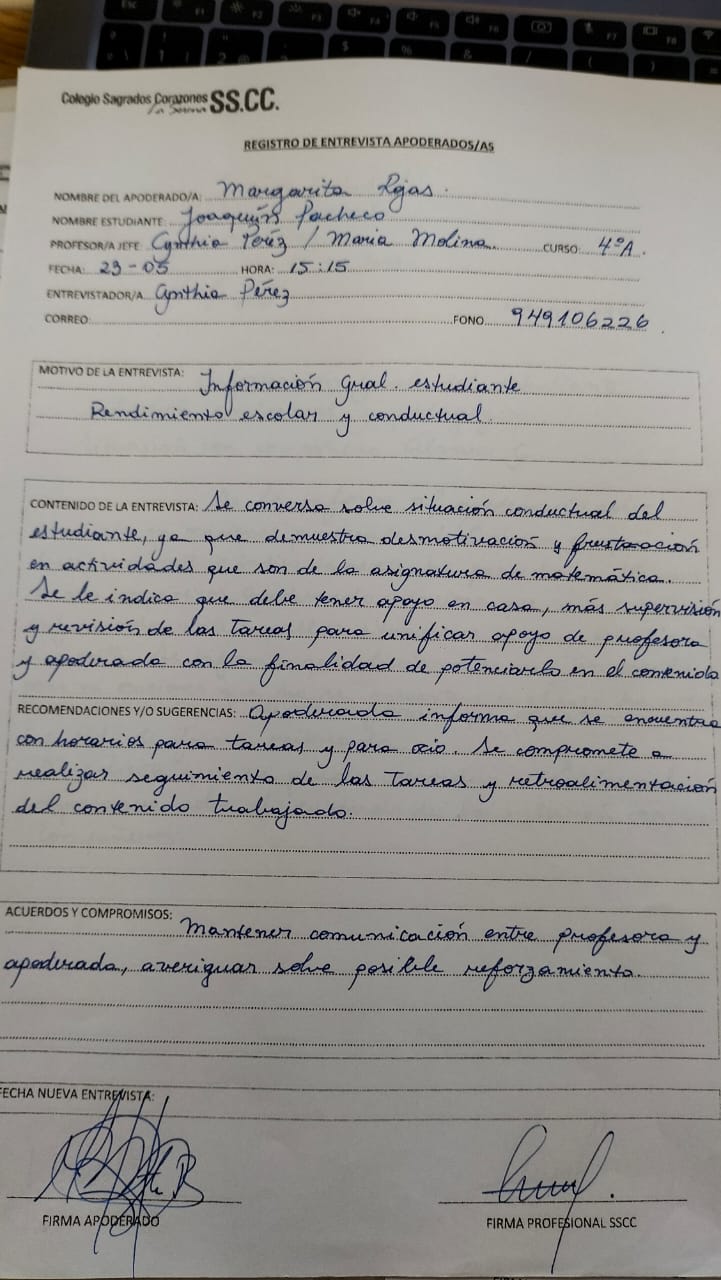 Colegio Sagrados Corazones SS.CC.
La Serena
REGISTRO DE ENTREVISTA APODERADOS/AS
NOMBRE DEL APODERADO/A: Margarita Rojas.
NOMBRE ESTUDIANTE: Joaquín Pacheco
PROFESOR/A JEFE: Cynthia Peréz / Maria Molina CURSO: 4°A.
FECHA: 23-05 HORA: 15:15
ENTREVISTADOR/A: Cynthia Pérez
CORREO: FONO 949106226
MOTIVO DE LA ENTREVISTA: Información gral. estudiante
Rendimiento escolar y conductual.
CONTENIDO DE LA ENTREVISTA: Se conversa sobre situación conductual del
estudiante, ya que demuestra desmotivación y frustración
en actividades que son de la asignatura de matemática.
Se le indica que debe tener apoyo en casa, más supervisión
y revisión de las tareas para unificar apoyo de profesora
y apoderada con la finalidad de potenciarlo en el contenido
RECOMENDACIONES Y/O SUGERENCIAS: Apoderada informa que se encuentra
con horarios para tareas y para ocio. Se compromete a
realizar seguimiento de las tareas y retroalimentación
del contenido trabajado.
ACUERDOS Y COMPROMISOS: Mantener comunicación entre profesora y
apoderada, averiguar sobre posible reforzamiento.
FECHA NUEVA ENTREVISTA:
FIRMA APODERADO FIRMA PROFESIONAL SSCC